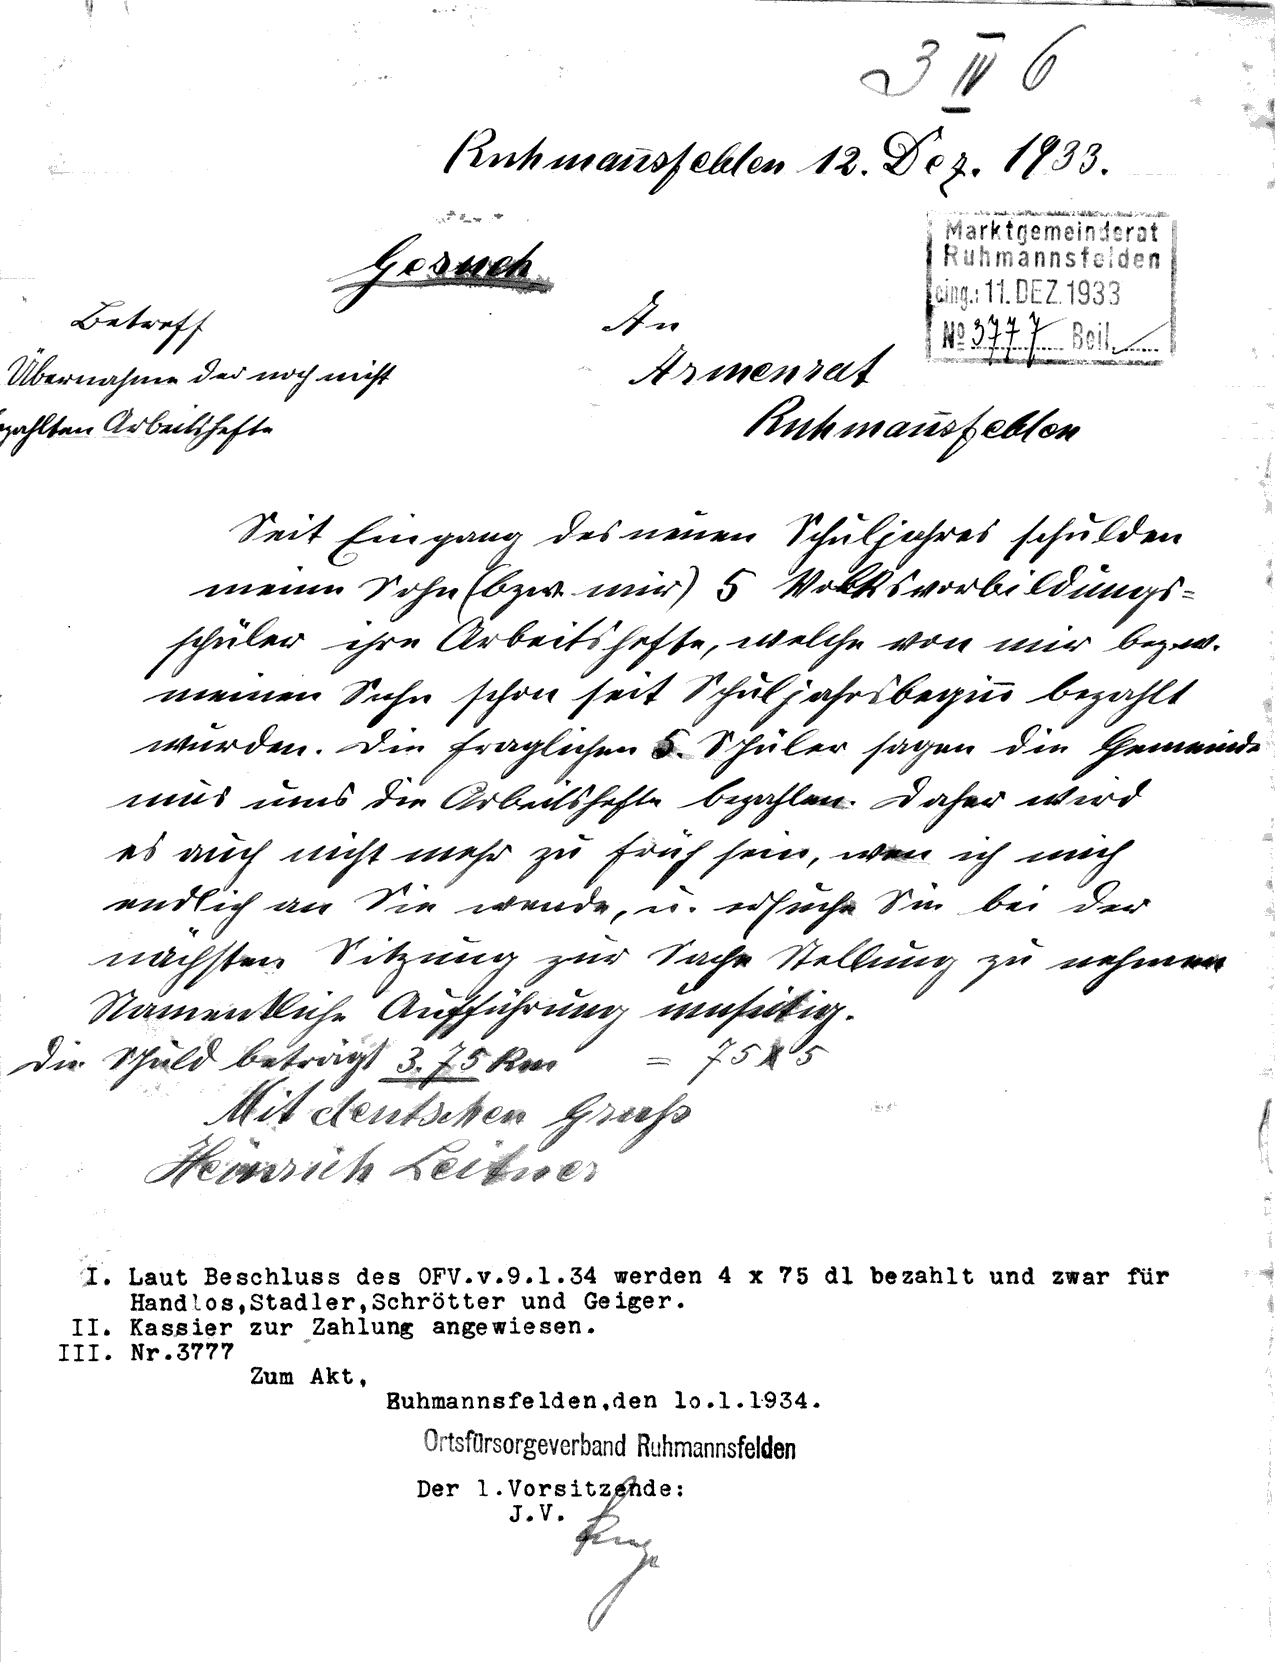 3 IV 6
Ruhmannsfelden 12. Dez. 1933.
Marktgemeinderat
Ruhmannsfelden
eing.: 11. DEZ. 1933
No 3777 Beil.
Gesuch
Betreff
Übernahme der noch nicht
bezahlten Arbeitshefte
An
Armenrat
Ruhmannsfelden
Seit Eingang des neuen Schuljahres schulden
meinem Sohn (bzw. mir) 5 Volksvorbildungs=
schüler ihre Arbeitshefte, welche von mir bezw.
meinen Sohn schon seit Schuljahrsbeginn bezahlt
wurden. Die fraglichen 5. Schüler sagen die Gemeinde
mus uns die Arbeitshefte bezahlen. Daher wird
es auch nicht mehr zu früh sein, wen ich mich
endlich an Sie wende, u. ersuche Sie bei der
nächsten Sitzung zur Sache Stellung zu nehmen
Namentliche Aufführung umseitig.
Die Schuld beträgt 3.75 Rm = 75 x 5
Mit deutschen Gruß
Heinrich Leitner
I. Laut Beschluss des OFV.v.9.1.34 werden 4 x 75 dl bezahlt und zwar für
Handlos,Stadler,Schrötter und Geiger.
II. Kassier zur Zahlung angewiesen.
III. Nr.3777
Zum Akt,
Ruhmannsfelden,den 1o.1.1934.
Ortsfürsorgeverband Ruhmannsfelden
Der 1.Vorsitzende:
J.V.